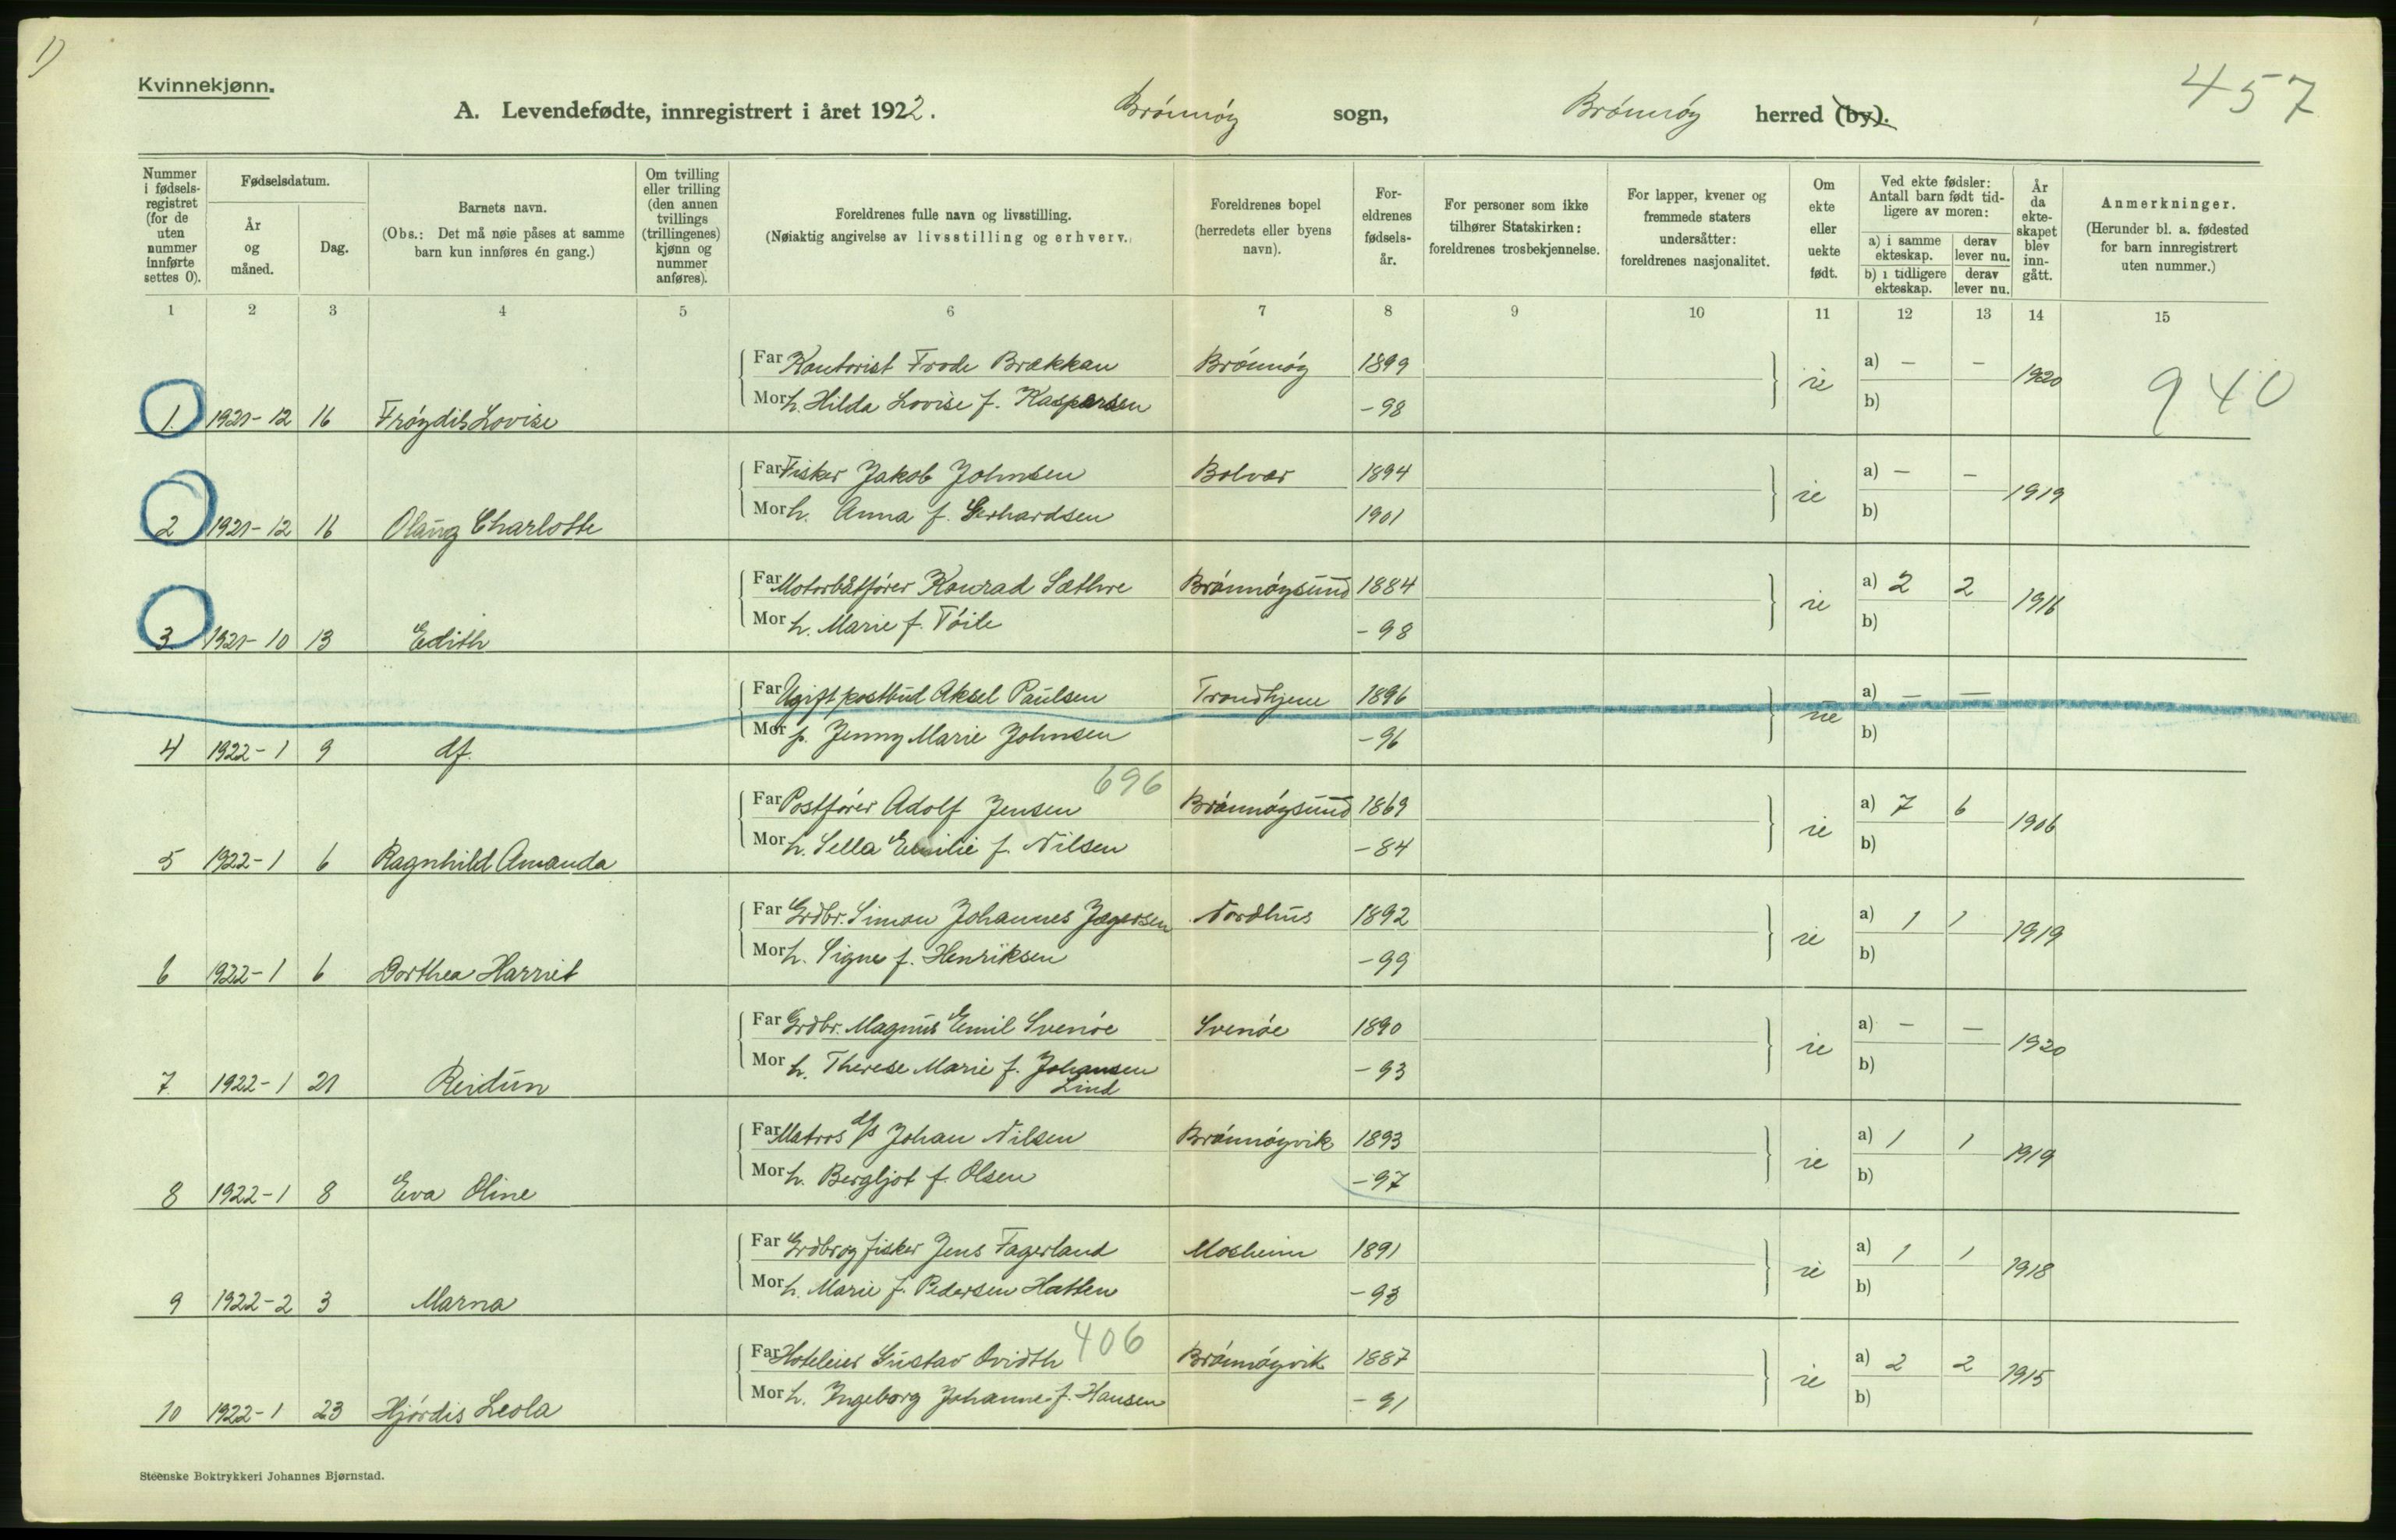 1)
Kvinnekjønn.
457
A. Levendefødte, innregistrert i året 1922. Brønnøy sogn, Brønnøy herred (by).
Nummer i fødsels-registret (for de uten nummer innførte settes 0).
Fødselsdatum.
År og måned.
Dag.
Barnets navn.
(Obs.: Det må nøie påses at samme barn kun innføres én gang.)
Om tvilling eller trilling (den annen tvillings (trillingenes) kjønn og nummer anføres).
Foreldrenes fulle navn og livsstilling.
(Nøiaktig angivelse av livsstilling og erhverv.)
Foreldrenes bopel (herredets eller byens navn).
For-eldrenes fødsels-år.
For personer som ikke tilhører Statskirken: foreldrenes trosbekjennelse.
For lapper, kvener og fremmede staters undersåtter: foreldrenes nasjonalitet.
Om ekte eller uekte født.
Ved ekte fødsler: Antall barn født tid-ligere av moren:
a) i samme ekteskap.
derav lever nu.
b) i tidligere ekteskap.
derav lever nu.
År da ekte-skapet blev inn-gått.
Anmerkninger.
(Herunder bl. a. fødested for barn innregistrert uten nummer.)
1 2 3 4 5 6 7 8 9 10 11 12 13 14 15
Far Kontorist Frode Brækkan Brønnøy 1899 a) – –
Mor h. Hilda Lovise f. Kaspersen -98 ie b) 1920 940
1. 1921-12 16 Frøydis Lovise
Far Fisker Jakob Johnsen Bolvær 1894 a) – –
Mor h. Anna f. Gerhardsen 1901 ie b) 1919
2 1921-12 16 Olaug Charlotte
Far Motorbåtfører Konrad Sæthre Brønnøysund 1884 a) 2 2
Mor h. Marie f. Tøile -98 ie b) 1916
3 1921-10 13 Edith
Far Ugift postbud Aksel Paulsen Trondhjem 1896 a) – –
Mor p. Jenny Marie Johnsen -96 ue b)
4 1922-1 9 df.
696
Far Postfører Adolf Jensen Brønnøysund 1869 a) 7 6
Mor h. Sella Emilie f. Nilsen -84 ie b) 1906
5 1922-1 6 Ragnhild Amanda
Far Grdbr. Simon Johannes Jægersen Nordhus 1892 a) 1 1
Mor h. Signe f. Henriksen -99 ie b) 1919
6 1922-1 6 Dorthea Harriet
Far Grdbr. Magnus Emil Svenøe Svenøe 1890 a) – –
Mor h. Therese Marie f. Johansen Lind -93 ie b) 1920
7. 1922-1 21 Reidun
Far Matros d/s Johan Nilsen Brønnøyvik 1893 a) 1 1
Mor h. Bergljot f. Olsen -97 ie b) 1919
8 1922-1 8 Eva Oline
Far Grdbr og fisker Jens Fagerland Mosheim 1891 a) 1 1
Mor h. Marie f. Pedersen Hatten -93 ie b) 1918
9 1922-2 3 Marna
406
Far Hoteleier Gustav Qvidth Brønnøyvik 1887 a) 2 2
Mor h. Ingeborg Johanne f. Hansen -91 ie b) 1915
10 1922-1 23 Hjørdis Leola
Steenske Boktrykkeri Johannes Bjørnstad.